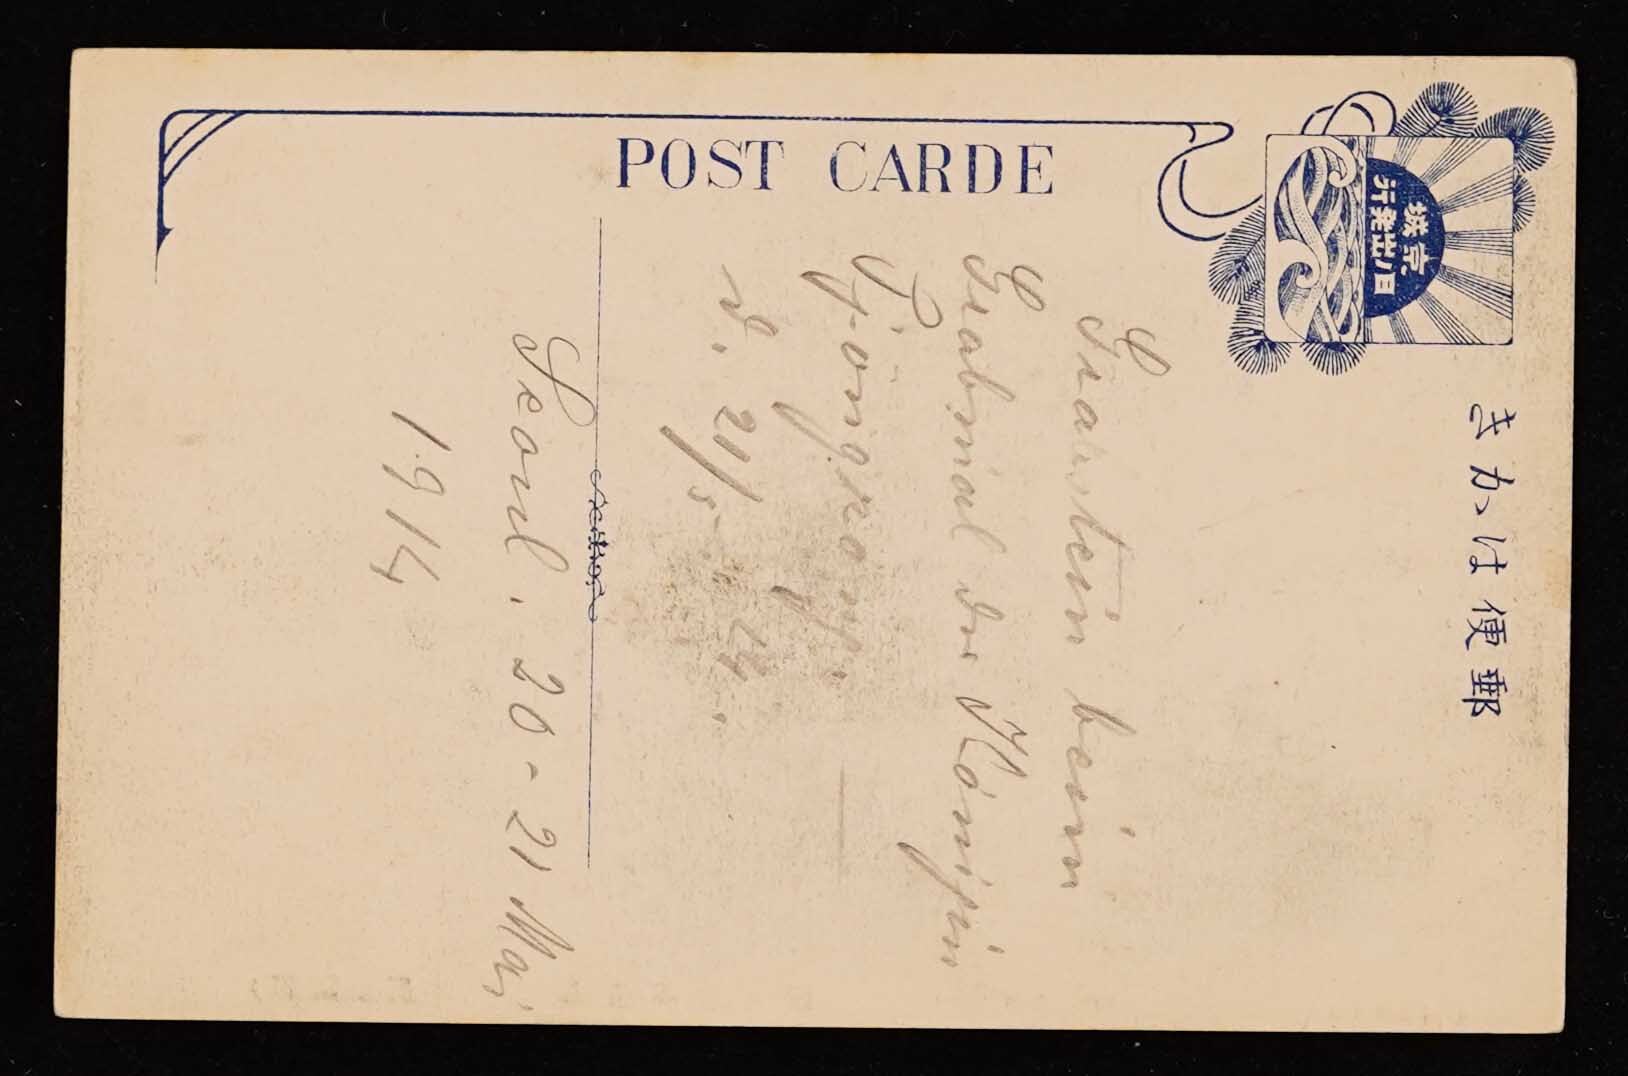 POST CARDE
郵便はかき
京城
日之出発行
beim
Grabmal der Königin
d. 21/5 14.
Seoul. 20-21 Mai
1914